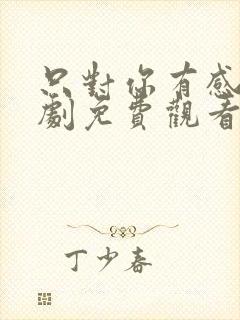 只對你有感
劇免費觀看
丁少春